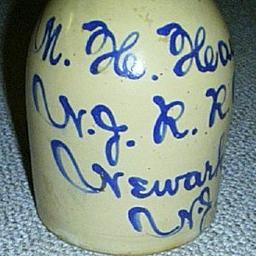 M. H. Hea
N. J. R. R
Newark
N.J.